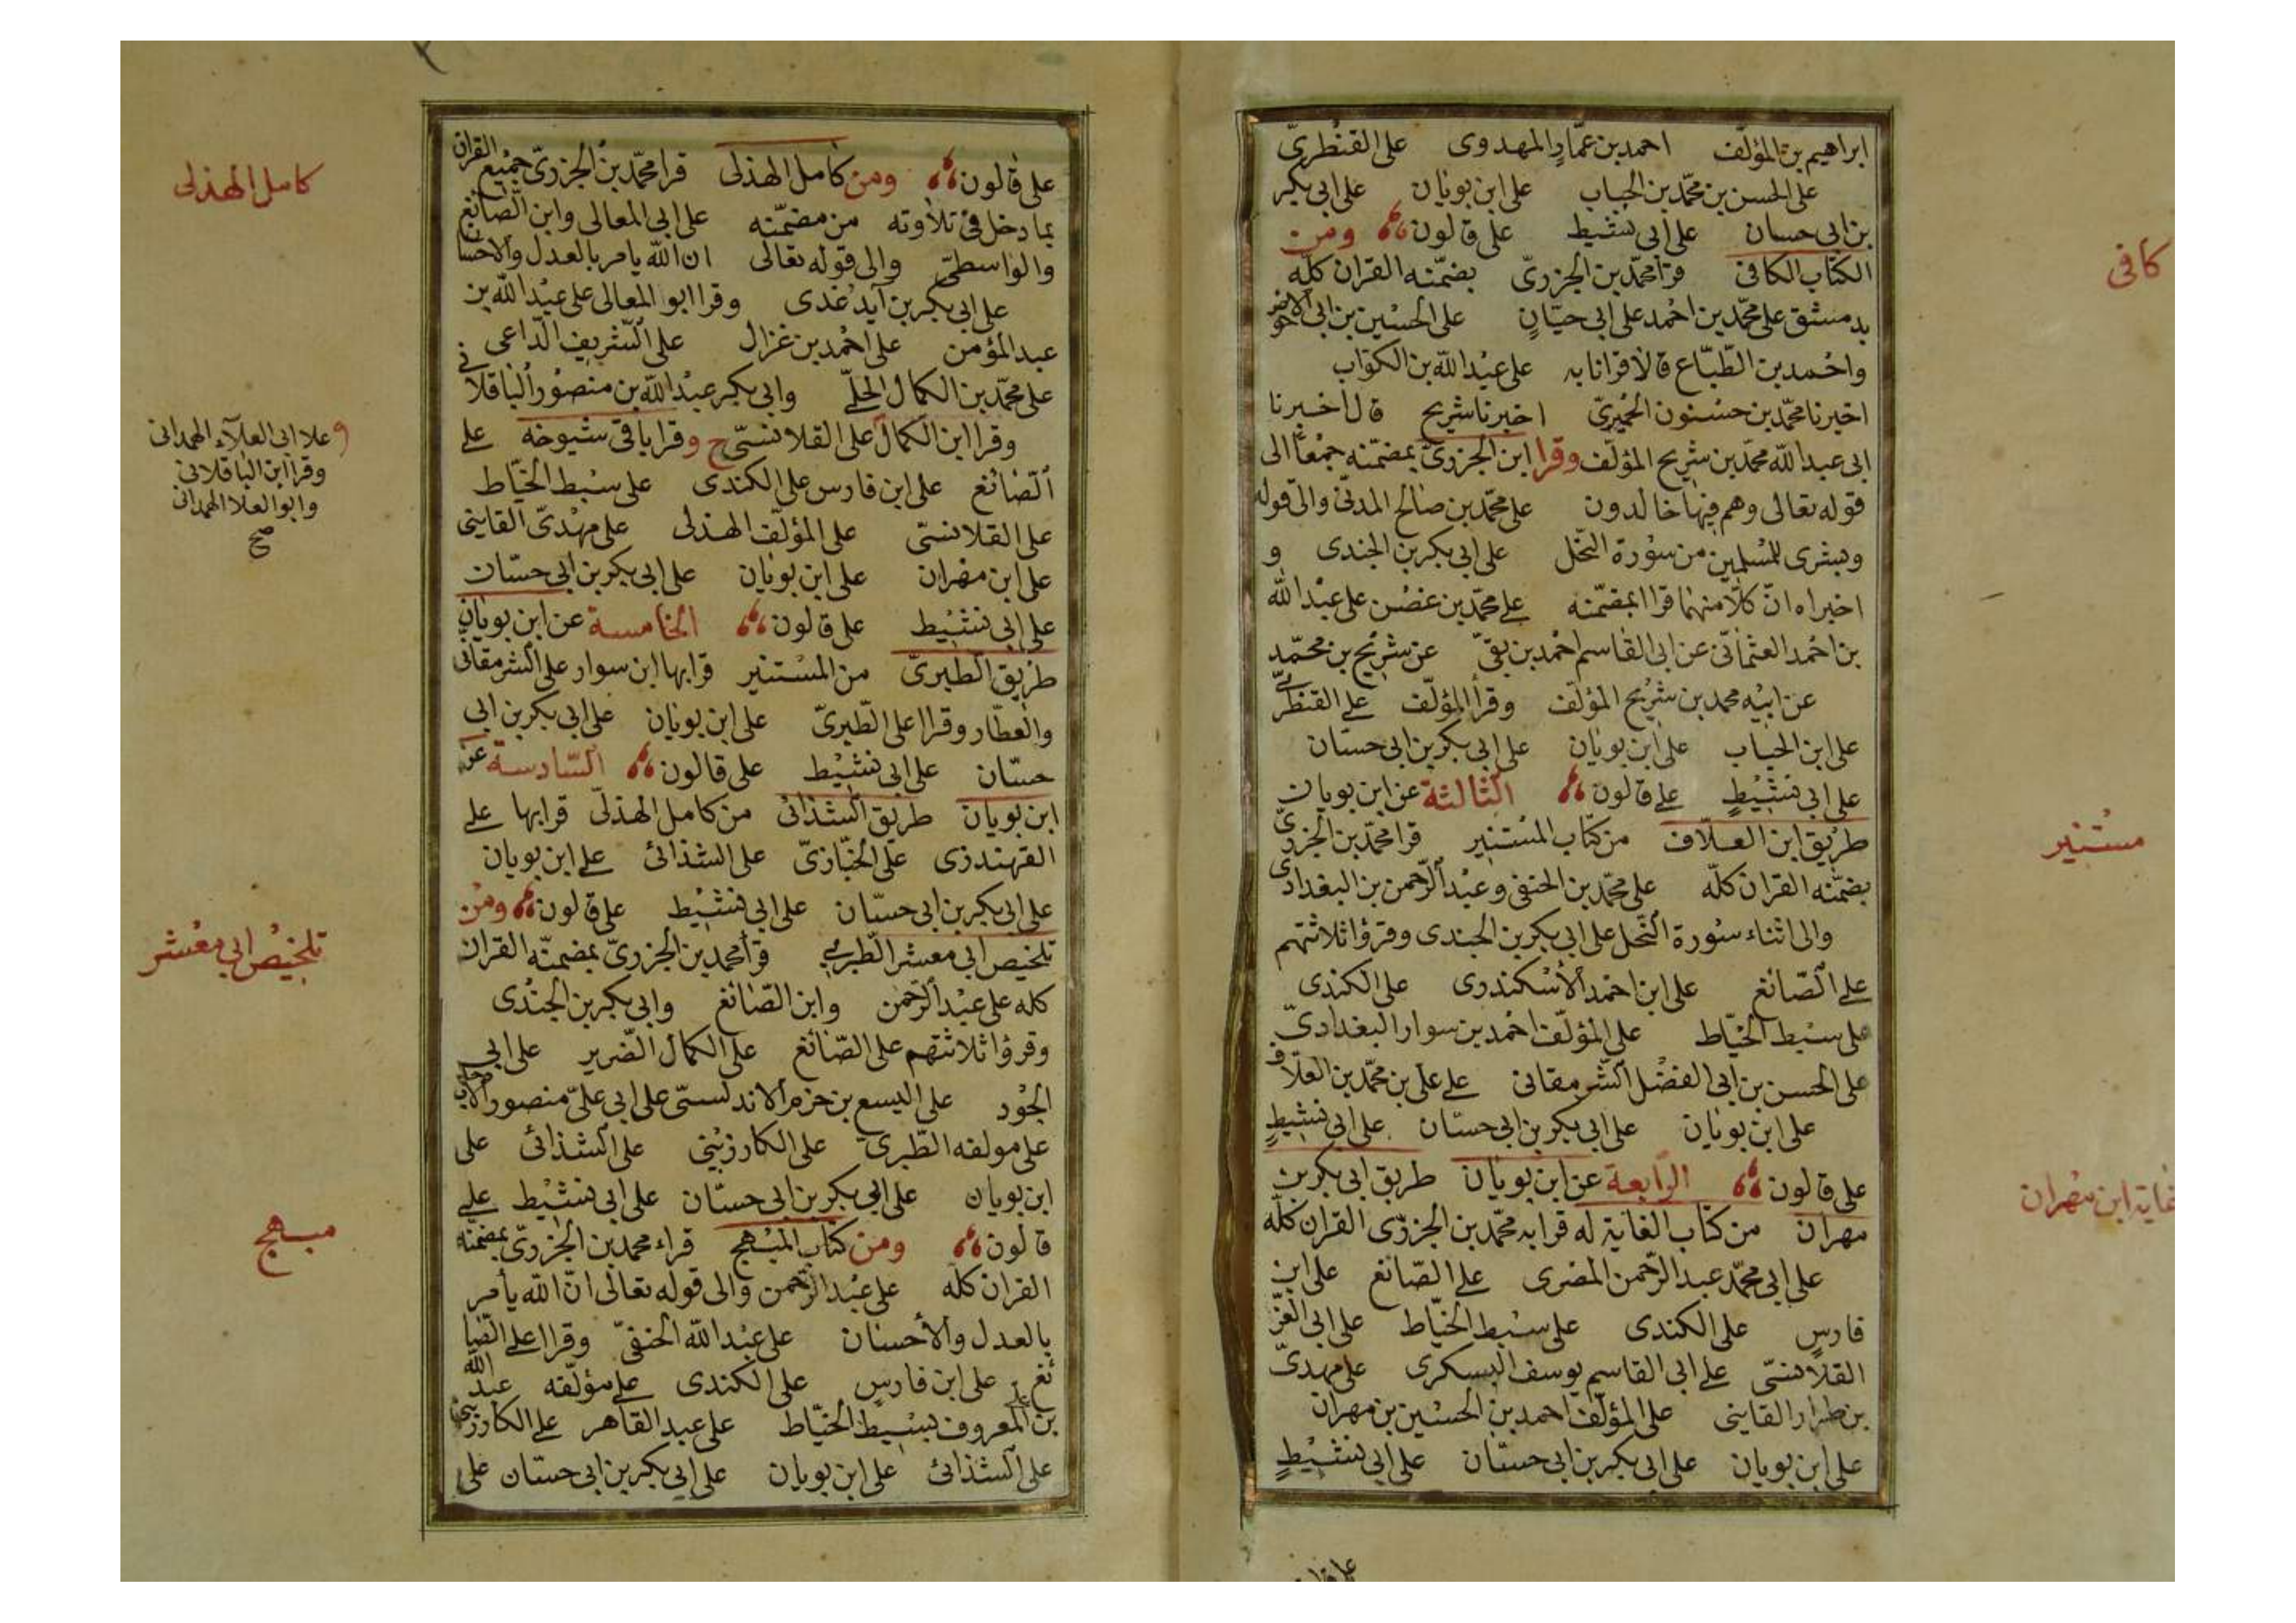 ابراهيم بن المؤلّف احمد بن عمّار المهدوى على القنطرىّ
على الحسن بن محمّد بن الحباب على ابن بويان على ابى بكر
بن ابى حسان على ابى نشيط على قالون ومن
الكتاب الكافى قرأ محمّد بن الجزرىّ بضمّنه القران كلّه
بدمشق على محمّد بن احمد على ابى حيّان على الحسين بن ابى الاحوص
واحمد بن الطّبّاع قالا قرانا به على عبد الله بن الكوّاب
اخبرنا محمّد بن حسنون الحميرىّ اخبرنا شريح قال اخبرنا
ابى عبد الله محمّد بن شريح المؤلّف وقرا ابن الجزرىّ بمضمّنه جمعًا الى
قوله تعالى وهم فيها خالدون على محمّد بن صالح المدنّى والى قوله
وبشرى للمسلمين من سورة النحّل على ابى بكر بن الجندى و
اخبراه انّ كلّا منهما قرا بمضمّنه على محمّد بن غصن على عبد الله
بن احمد العثمانّى عن ابى القاسم احمد بن بقىّ عن شريح بن محمّد
عن ابيه محمد بن شريح المؤلّف وقرأ المؤلّف على القنطرىّ
على ابن الحباب على ابن بويان على ابى بكر بن ابى حسّان
على ابى نشيطٍ على قالون الثالثة عن ابن بويان
طريق ابن العلّاف من كتاب المستنير قرا محمّد بن الجزرىّ
بضمّنه القران كلّه على محمّد بن الحنفى وعبد الرّحمن بن البغدادى
والى اثناء سورة النّحل على ابى بكر بن الجندى وقرؤا ثلاثتهم
على الصّائغ على ابن احمد الأسكندرى على الكندى
على سبط الخيّاط على المؤلّف احمد بن سوار البغدادىّ
على الحسن بن ابى الفضل الشّرمقانى على على بن محمّد بن العلّاف
على ابن بويان على ابى بكر بن ابى حسّان على ابى نشيطٍ
على قالون الرّابعة عن ابن بويان طريق ابى بكر بن
مهران من كتاب الغاية له قرا به محمّد بن الجزرّى القران كلّه
على ابى محمّد عبد الرّحمن المصرى على الصّائغ على ابن
فارسٍ على الكندى على سبط الخيّاط على ابى العزّ
القلانسىّ على ابى القاسم يوسف البسكرى على مهدىّ
بن طرار القاينى على المؤلّف احمد بن الحسين بن مهران
على ابن بويان على ابى بكر بن ابى حسّان على ابى نشيطٍ
كافى
مستنير
غاية ابن مهران
على قالون ومن كامل الهذلى قرا محمّد بن الجزرىّ جميع القران
بما دخل فى تلاوته من مضمّنه على ابى المعالى وابن الصّائغ
والواسطىّ والى قوله تعالى ان الله يامر بالعدل والاحسان
على ابى بكر بن آيدغدى وقرا ابو المعالى على عبد الله بن
عبد المؤمن على احمد بن غزال على الشّريف الدّاعى
على محمّد بن الكمال الحلّى وابى بكر عبد الله بن منصور الباقلانى
وقرا ابن الكمال على القلانسّى ح وقرا باقى شيوخه على
الصّائغ على ابن فارس على الكندى على سبط الخيّاط
على القلانسّى على المؤلّف الهذلى على مهدىّ القاينى
على ابن مهران على ابن بويان على ابى بكر بن ابى حسّان
على ابى نشيط على قالون الخامسة عن ابن بويان
طريق الطّبرىّ من المستنير قرا بها ابن سوار على الشّرمقانى
والعطّار وقرا على الطّبرىّ على ابن بويان على ابى بكر بن ابى
حسّان على ابى نشيط على قالون السّادسة عن
ابن بويان طريق الشّذائى من كامل الهذلّى قرا بها على
القهندزى على الخبّازىّ على الشذائى على ابن بويان
على ابى بكر بن ابى حسّان على ابى نشيط على قالون ومن
تلخيص ابى معشر الطّبرى قرأ محمد بن الجزرىّ بمضمنّه القران
كله على عبد الرّحمن وابن الصّائغ وابى بكر بن الجندى
وقرؤا ثلاثتهم على الصّائغ على الكمال الضّرير على ابى
الجود على اليسع بن حزم الاندلسىّ على ابى علىّ منصور
على مولفه الطّبرى على الكارزينى على الشذائى على
ابن بويان على ابى بكر بن ابى حسّان على ابى نشيط على
قالون ومن كتاب المبهج قراء محمد بن الجزرىّ بمضمنه
القران كلّه على عبد الرّحمن والى قوله تعالى انّ الله يأمر
بالعدل والأحسان على عبد الله الحنفىّ وقرا على الصّا
ئغ على ابن فارس على الكندى على مؤلّفه عبد الله
بن على المعروف بسبط الخيّاط على عبد القاهر على الكارزينى
على الشّذائى على ابن بويان على ابى بكر بن ابى حسّان على
كامل الهذلى
وعلا ابى العلآء الهمدانى
وقرا ابن الباقلانى
وابو العلا الهمدانى
صح
تلخيص ابى معشر
مبهج